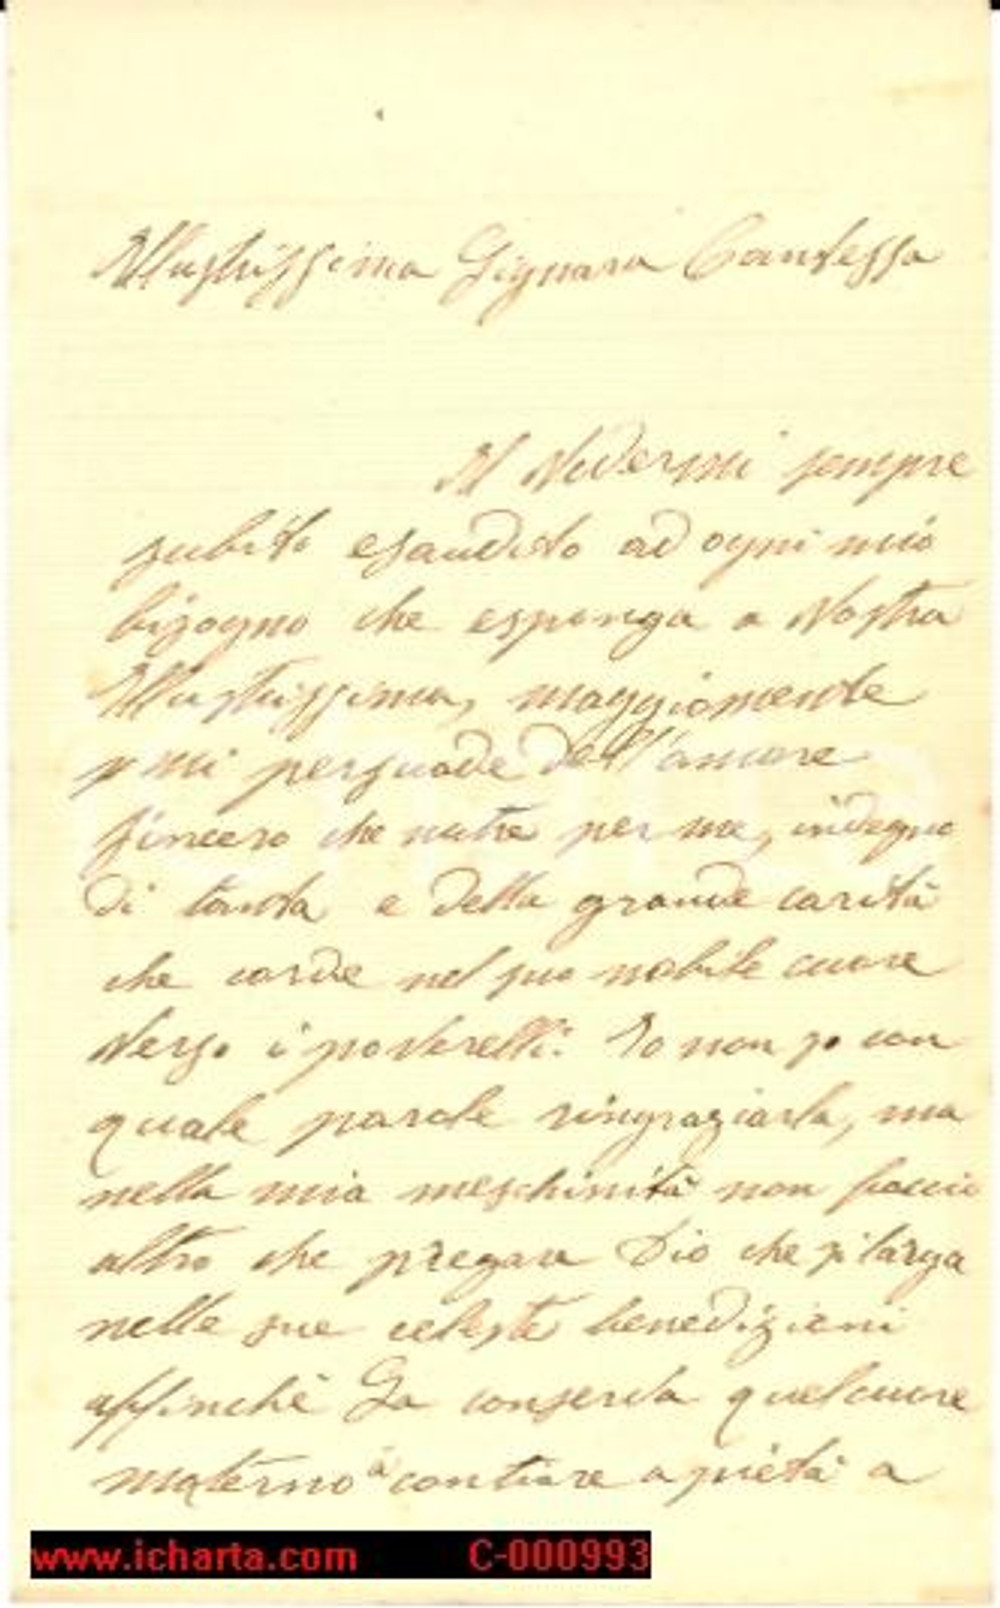 Illustrissima Signora Contessa
Il Vedermi sempre
subito esaudito ad ogni mio
bisogno che esponga a Vostra
Illustrissima, maggiormente
mi persuade dell'amore
sincero che nutre per me, indegno
di tanta e della grande carità
che arde nel suo nobile cuore
Verso i poverelli. Io non so con
quale parole ringraziarla, ma
nella mia meschinità non faccio
altro che pregare Dio che si larga
nelle sue celeste benedizioni
affinché La conserva quel cuore
materno a a pietà a
www.icharta.com C-000993